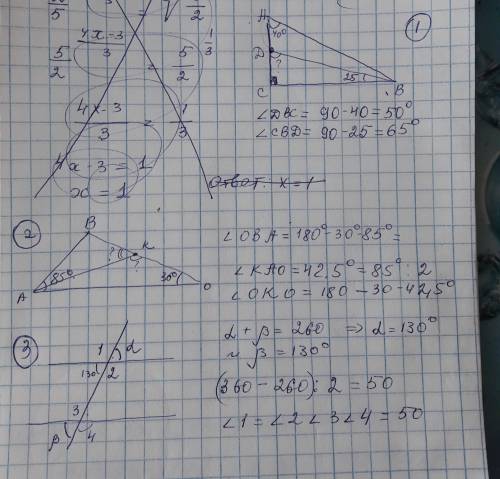 5
1
2
4x-3
3
1
3
5
2
=
5
2
4x-3
3
=
1
3
4x-3=1
x=1
Ответ: x=1
1
A
40°
D
?
C
25
B
∠DBC = 90-40=50°
∠CBD= 90-25=65°
2
B
K
?
?
85°
30°
A
O
∠OBA=180°-30°-85°=
∠KAO=42,5°=85°:2
∠OKO=180-30-42,5°
3
1
α
130°
2
3
β
4
α+β=260 ⇒ α=130°
β=130°
(360-260):2=50
∠1=∠2∠3∠4=50